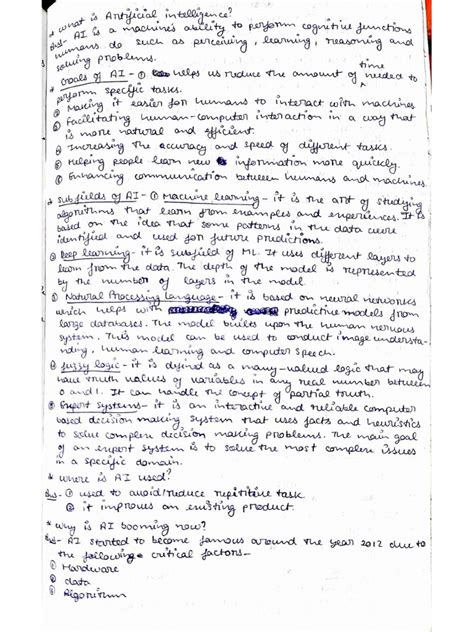 * what is Artificial intelligence?
Ans- AI is a machine's ability to perform cognitive functions
humans do such as perceiving, learning, reasoning and
solving problems.
* Goals of AI - ① helps us reduce the amount of time needed to
perform specific tasks.
② Making it easier for humans to interact with machines
③ Facilitating human-computer interaction in a way that
is more natural and efficient.
④ Increasing the accuracy and speed of different tasks.
⑤ Helping people learn new information more quickly.
⑥ Enhancing communication between humans and machines.
* Subfields of AI - ① Machine learning - it is the art of studying
algorithms that learn from examples and experiences. It is
based on the idea that some patterns in the data were
identified and used for future predictions.
② Deep learning - it is subfield of ML. It uses different layers to
learn from the data. The depth of the model is represented
by the number of layers in the model.
③ Natural Processing language - it is based on neural networks
which helps with predictive models from
large databases. The model builts upon the human nervous
system. This model can be used to conduct image understa-
nding, human learning and computer speech.
④ fuzzy logic - it is defined as a many-valued logic that may
have truth values of variables in any real number between
0 and 1. It can handle the concept of partial truth.
⑤ Expert systems - it is an interactive and reliable computer
based decision making system that uses facts and heuristics
to solve complex decision making problems. The main goal
of an expert system is to solve the most complex issues
in a specific domain.
* where is AI used?
Ans - ① used to avoid/reduce repititive task
② it improves an existing product.
* why is AI booming now?
Ans - AI started to become famous around the year 2012 due to
the following critical factors-
① Hardware
② data
③ Algorithm